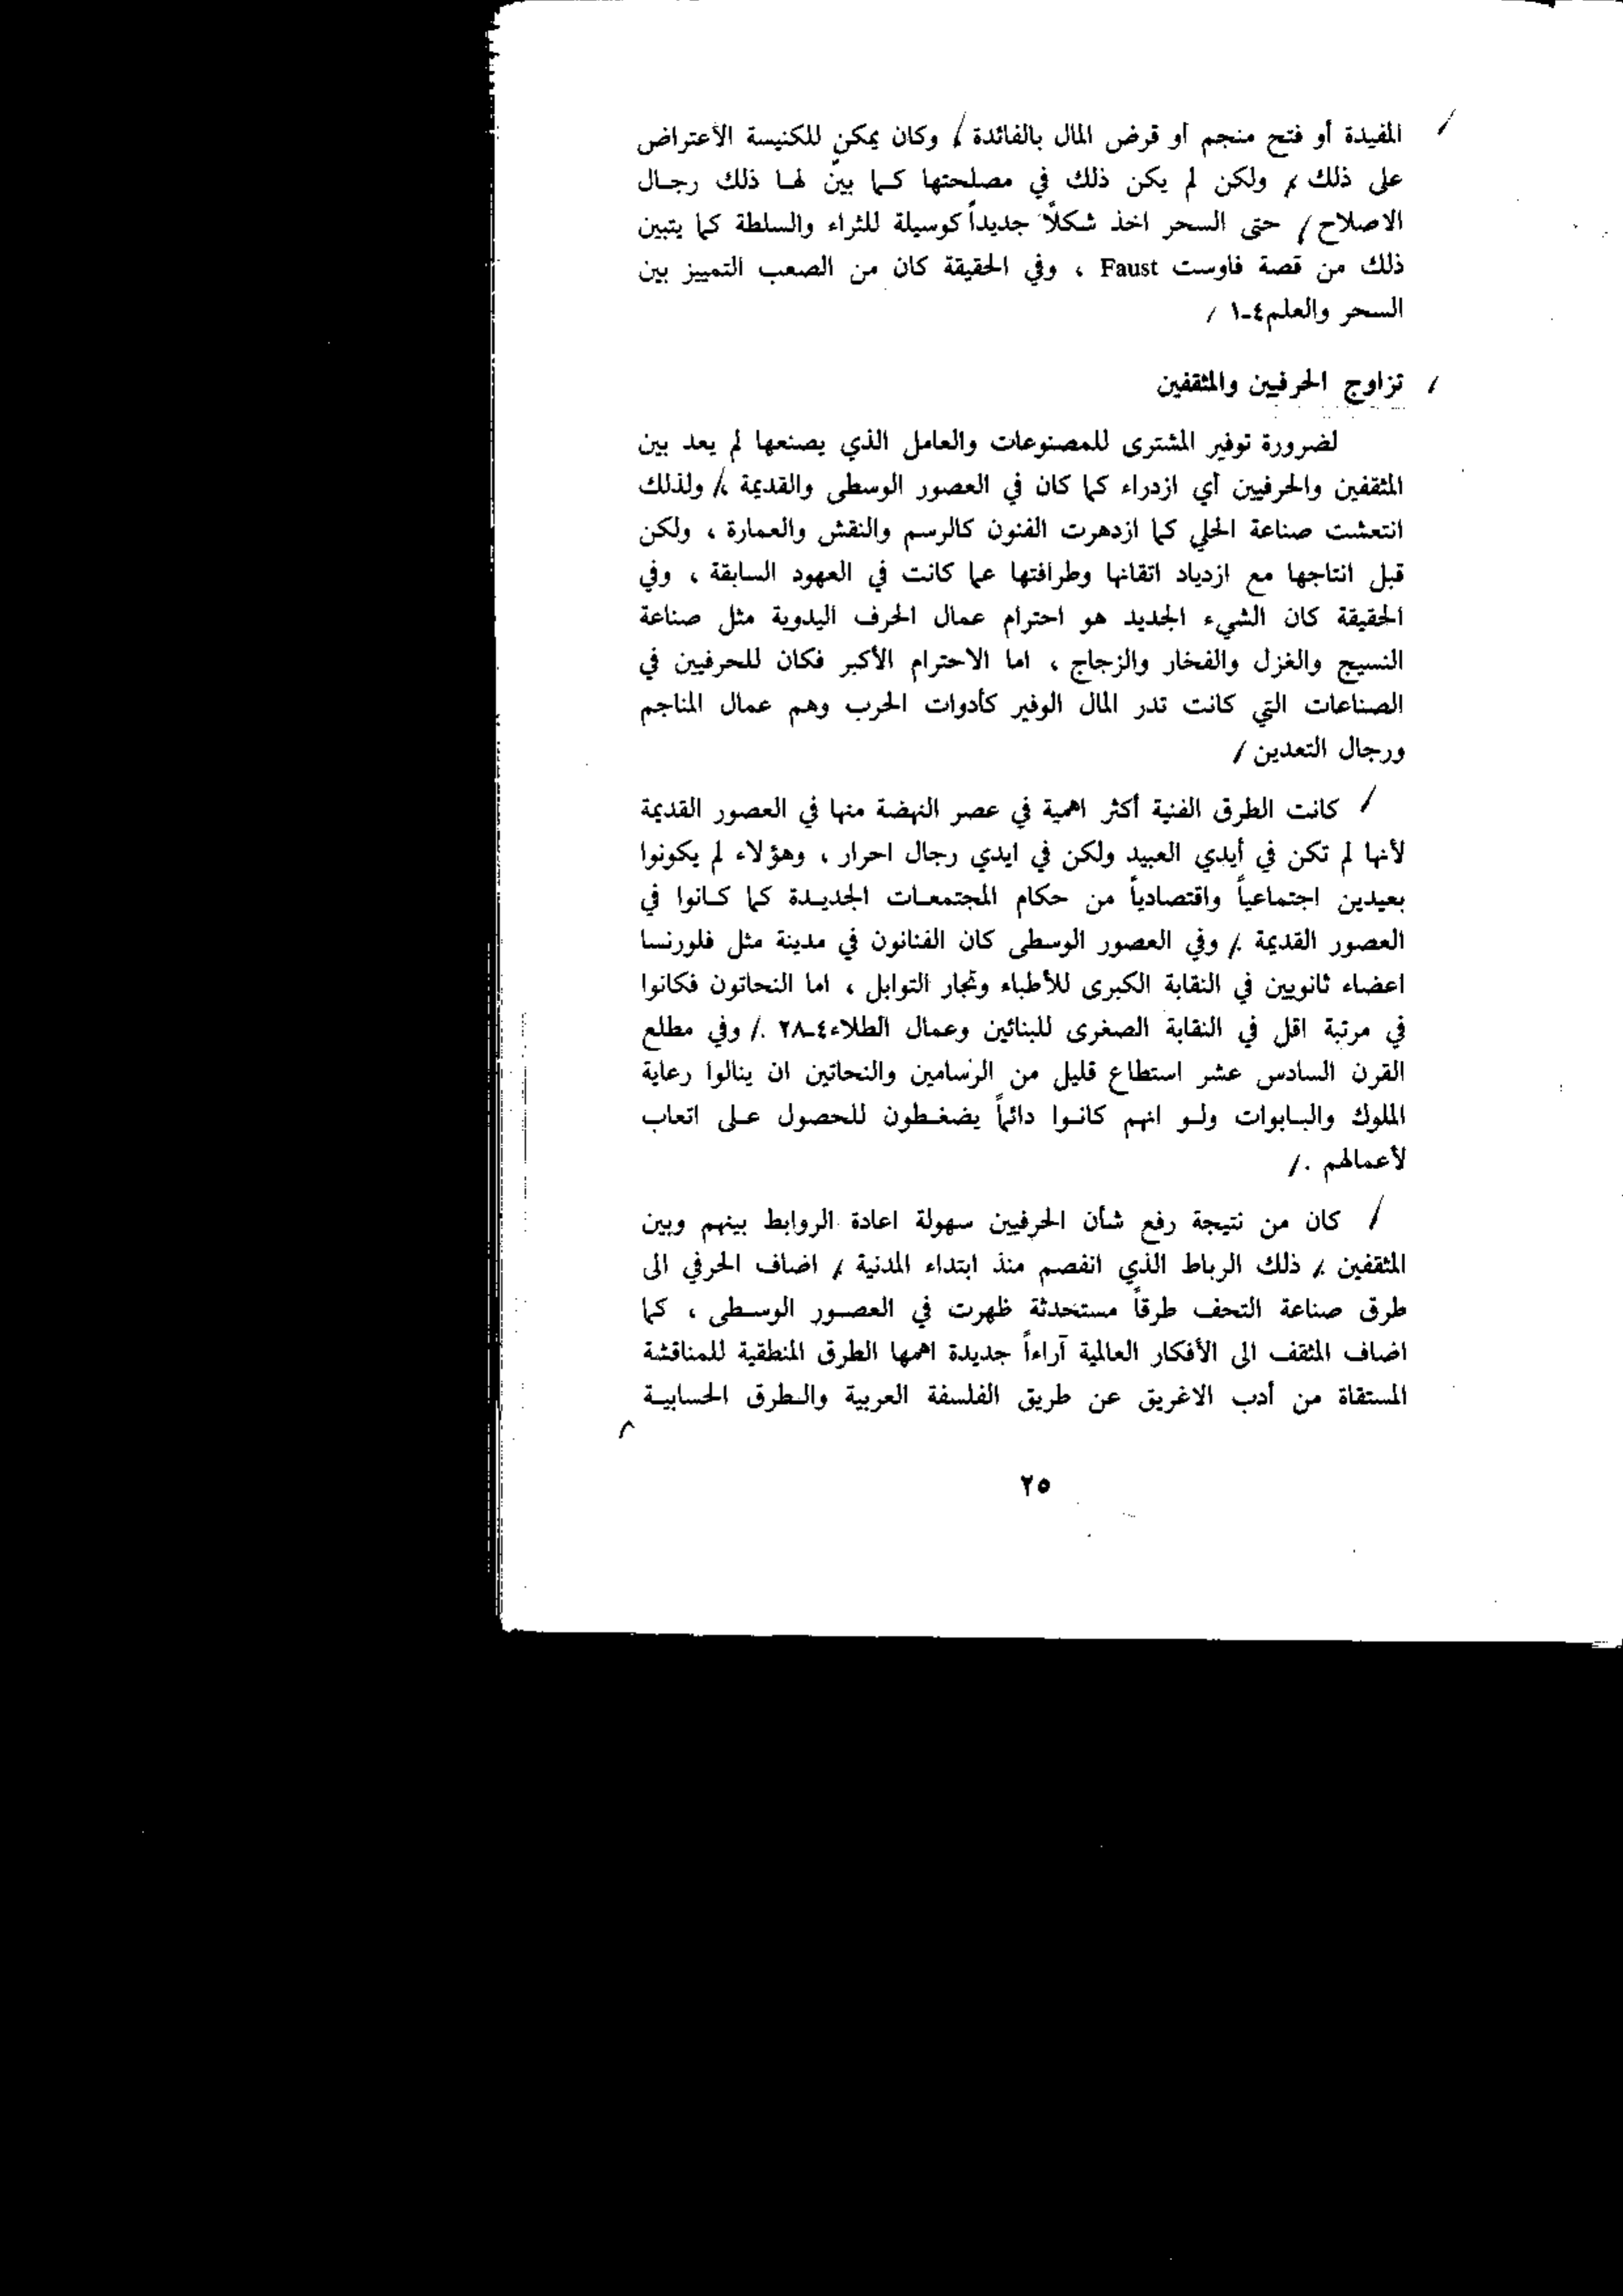 المفيدة أو فتح منجم أو قرض المال بالفائدة ، وكان يمكن للكنيسة الأعتراض
على ذلك ، ولكن لم يكن ذلك في مصلحتها كما بينّ لها ذلك رجال
الاصلاح ، حتى السحر اخذ شكلاً جديداً كوسيلة للثراء والسلطة كما يتبين
ذلك من قصة فاوست Faust ، وفي الحقيقة كان من الصعب التمييز بين
السحر والعلم٤-١
تزاوج الحرفيين والمثقفين
لضرورة توفير المشترى للمصنوعات والعامل الذي يصنعها لم يعد بين
المثقفين والحرفيين أي ازدراء كما كان في العصور الوسطى والقديمة ، ولذلك
انتعشت صناعة الحلي كما ازدهرت الفنون كالرسم والنقش والعمارة ، ولكن
قبل انتاجها مع ازدياد اتقانها وطرافتها عما كانت في العهود السابقة ، وفي
الحقيقة كان الشيء الجديد هو احترام عمال الحرف اليدوية مثل صناعة
النسيج والغزل والفخار والزجاج ، اما الاحترام الأكبر فكان للحرفيين في
الصناعات التي كانت تدر المال الوفير كأدوات الحرب وهم عمال المناجم
ورجال التعدين
كانت الطرق الفنية أكثر اهمية في عصر النهضة منها في العصور القديمة
لأنها لم تكن في أيدي العبيد ولكن في ايدي رجال احرار ، وهؤلاء لم يكونوا
بعيدين اجتماعياً واقتصادياً من حكام المجتمعات الجديدة كما كانوا في
العصور القديمة . وفي العصور الوسطى كان الفنانون في مدينة مثل فلورنسا
اعضاء ثانويين في النقابة الكبرى للأطباء وتجار التوابل ، اما النحاتون فكانوا
في مرتبة اقل في النقابة الصغرى للبنائين وعمال الطلاء٤-٢٨ . وفي مطلع
القرن السادس عشر استطاع قليل من الرسامين والنحاتين ان ينالوا رعاية
الملوك والبابوات ولو انهم كانوا دائماً يضغطون للحصول على اتعاب
لأعمالهم .
كان من نتيجة رفع شأن الحرفيين سهولة اعادة الروابط بينهم وبين
المثقفين ، ذلك الرباط الذي انفصم منذ ابتداء المدنية ، اضاف الحرفي الى
طرق صناعة التحف طرقاً مستحدثة ظهرت في العصور الوسطى ، كما
اضاف المثقف الى الأفكار العالمية آراءاً جديدة اهمها الطرق المنطقية للمناقشة
المستقاة من أدب الاغريق عن طريق الفلسفة العربية والطرق الحسابية
٢٥